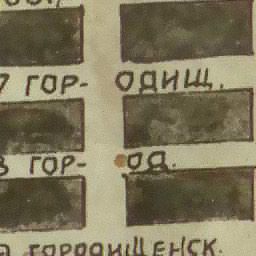 7 ГОР- ОДИЩ.
ГОР- ОД.
ГОРОДИЩЕНСК.